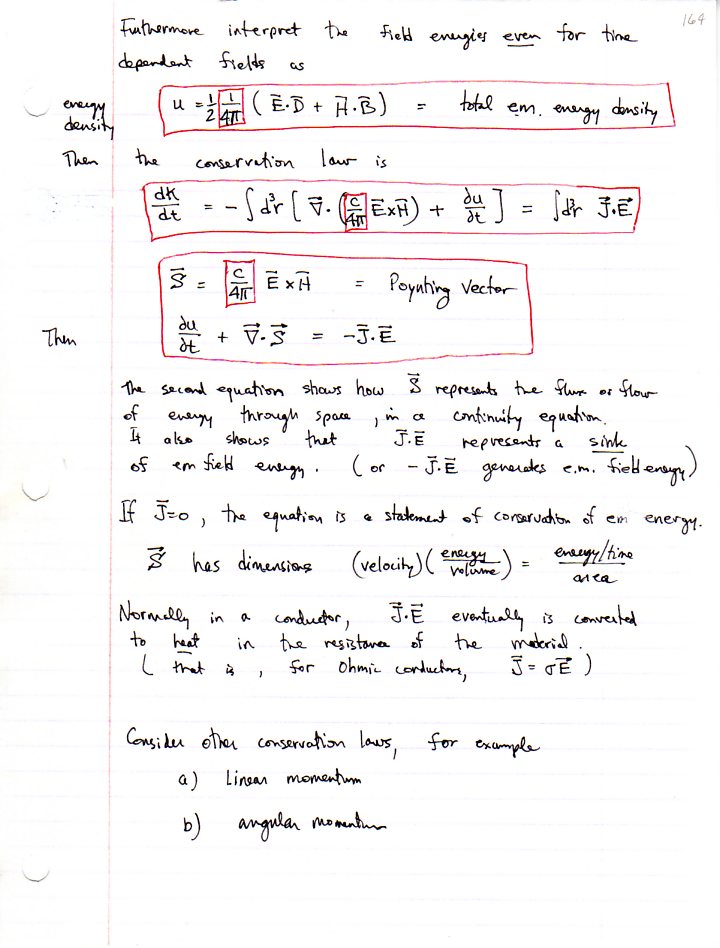 164
Furthermore interpret the field energies even for time
dependent fields as
energy density u = 1/2 1/4π ( E⃗·D⃗ + H⃗·B⃗ ) = total em. energy density
Then the conservation law is
dK/dt = - ∫ d³r [ ∇⃗· ( c/4π E⃗×H⃗ ) + ∂u/∂t ] = ∫ d³r J⃗·E⃗
S⃗ = c/4π E⃗×H⃗ = Poynting vector
Then ∂u/∂t + ∇⃗·S⃗ = -J⃗·E⃗
The second equation shows how S⃗ represents the flux or flow
of energy through space, in a continuity equation.
It also shows that J⃗·E⃗ represents a sink
of em field energy. (or -J⃗·E⃗ generates e.m. field energy)
If J⃗=0, the equation is a statement of conservation of em energy.
S⃗ has dimensions (velocity)(energy/volume) = energy/time/area
Normally in a conductor, J⃗·E⃗ eventually is converted
to heat in the resistance of the material.
( that is, for Ohmic conductors, J⃗ = σE⃗ )
Consider other conservation laws, for example
a) linear momentum
b) angular momentum